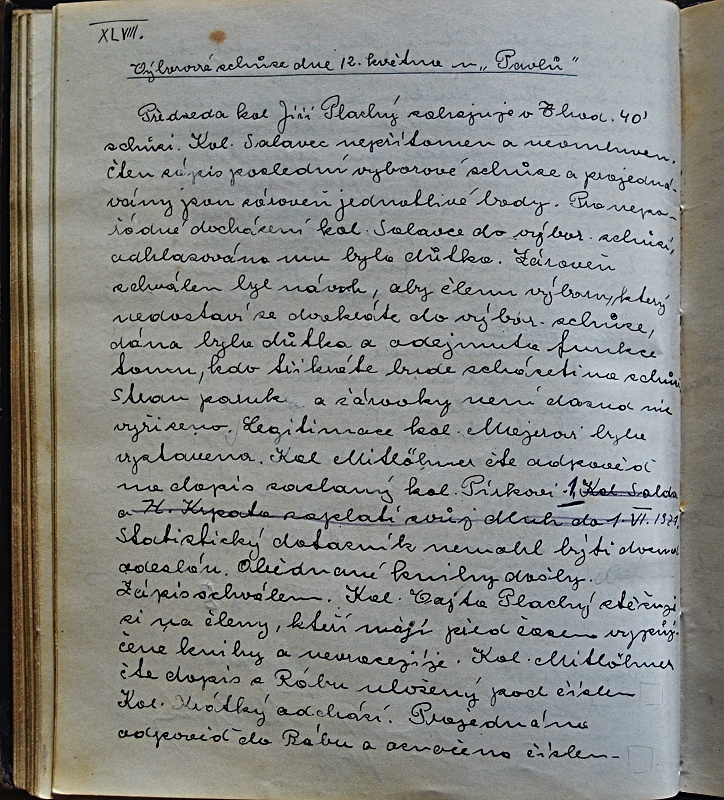 XLVIII.
Výborová schůze dne 12. května u „Pavlů"
Předseda kol Jiří Plachý zahajuje v 7 hod. 40'
schůzi. Kol. Salavec nepřítomen a neomluven.
Čten zápis poslední výborové schůze a projedná-
vány jsou zároveň jednotlivé body. Pro nepo-
řádné docházení kol. Salavce do výbor. schůzí,
odhlasována mu byla důtka. Zároveň
schválen byl návrh, aby členu výboru, který
nedostaví se dvakráte do výbor. schůze,
dána byla důtka a odejmuta funkce
tomu, kdo třikráte bude scházeti na schůzi
Stran paruk a žárovky není dosud nic
vyřízeno. Legitimace kol. Majerovi byla
vystavena. Kol Mitlöhner čte odpověď
na dopis zaslaný kol. Pírkovi. 1, Kol Salda
a H. Krpata zaplatí svůj dluh do 1. VI. 1921.
Statistický dotazník nemohl býti dosud
odeslán. Objednané knihy došly.
Zápis schválen. Kol. Vojta Plachý stěžuje
si na členy, kteří mají před časem vypůj-
čené knihy a nevracejí je. Kol. Mitlöhner
čte dopis z Rábu uložený pod číslem
Kol. Krátký odchází. Projednána
odpověď do Rábu a označena číslem-